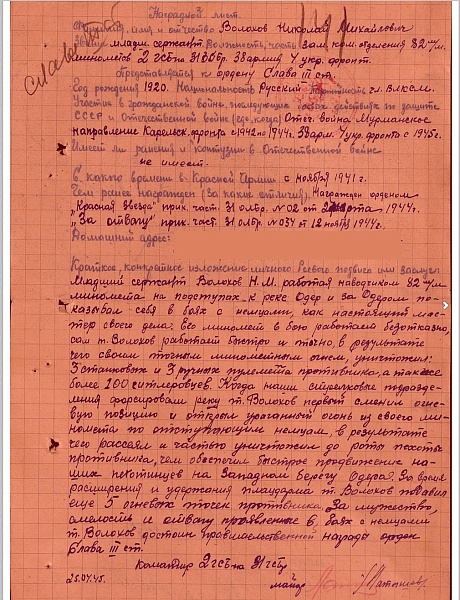 Наградной лист.
Фамилия, имя и отчество Волохов Николай Михайлович
Звание младш. сержант. Должность, часть зам. ком. отделения 82 м/м.
минометов 2 гсб 31 38 армии 4 укр. фронт.
Представляется к ордену Слава III ст.
Славы III ст
Год рождения 1920. Национальность Русский. Партийность чл. ВЛКСМ.
Участие в гражданской войне, последующих боевых действиях по защите
СССР и Отечественной войне (где, когда) Отеч. война Мурманское
направление Карельск. фронта с 1942 по 1944г. 38 арм. 4 укр. фронта с 1945г.
Имеет ли ранения и контузии в Отечественной войне
не имеет.
С какого времени в Красной Армии с ноября 1941г.
Чем ранее награжден (за какие отличия). Награжден орденом
"Красная Звезда" прик. част. 31 олбр. №02 от марта 1944г.
"За отвагу" прик. част. 31 олбр. №034 от 12 ноября 1944г.
Домашний адрес:
Краткое, конкретное изложение личного боевого подвига или заслуг:
Младший сержант Волохов Н.М. работая наводчиком 82 м/м
миномета на подступах к реке Одер и за Одером по-
казывал себя в боях с немцами, как настоящий мас-
тер своего дела. Его миномет в бою работает безотказно,
сам т. Волохов работает быстро и точно, в результате
чего своим точным минометным огнем, уничтожил:
3 станковых и 3 ручных пулемета противника, а также
более 100 гитлеровцев. Когда наши стрелковые подразде-
ления форсировали реку т. Волохов первый сменил огне-
вую позицию и открыл ураганный огонь из своего ми-
номета по отступающим немцам, в результате
чего рассеял и частью уничтожил до роты пехоты
противника, чем обеспечил быстрое продвижение на-
ших пехотинцев на Западном берегу Одера. За время
расширения и удержания плацдарма т. Волохов подавил
еще 5 огневых точек противника. За мужество,
смелость и отвагу проявленные в боях с немцами
т. Волохов достоин правительственной награды орден
Слава III ст.
Командир 2 гсб 31 гсбр
25.04.45. майор